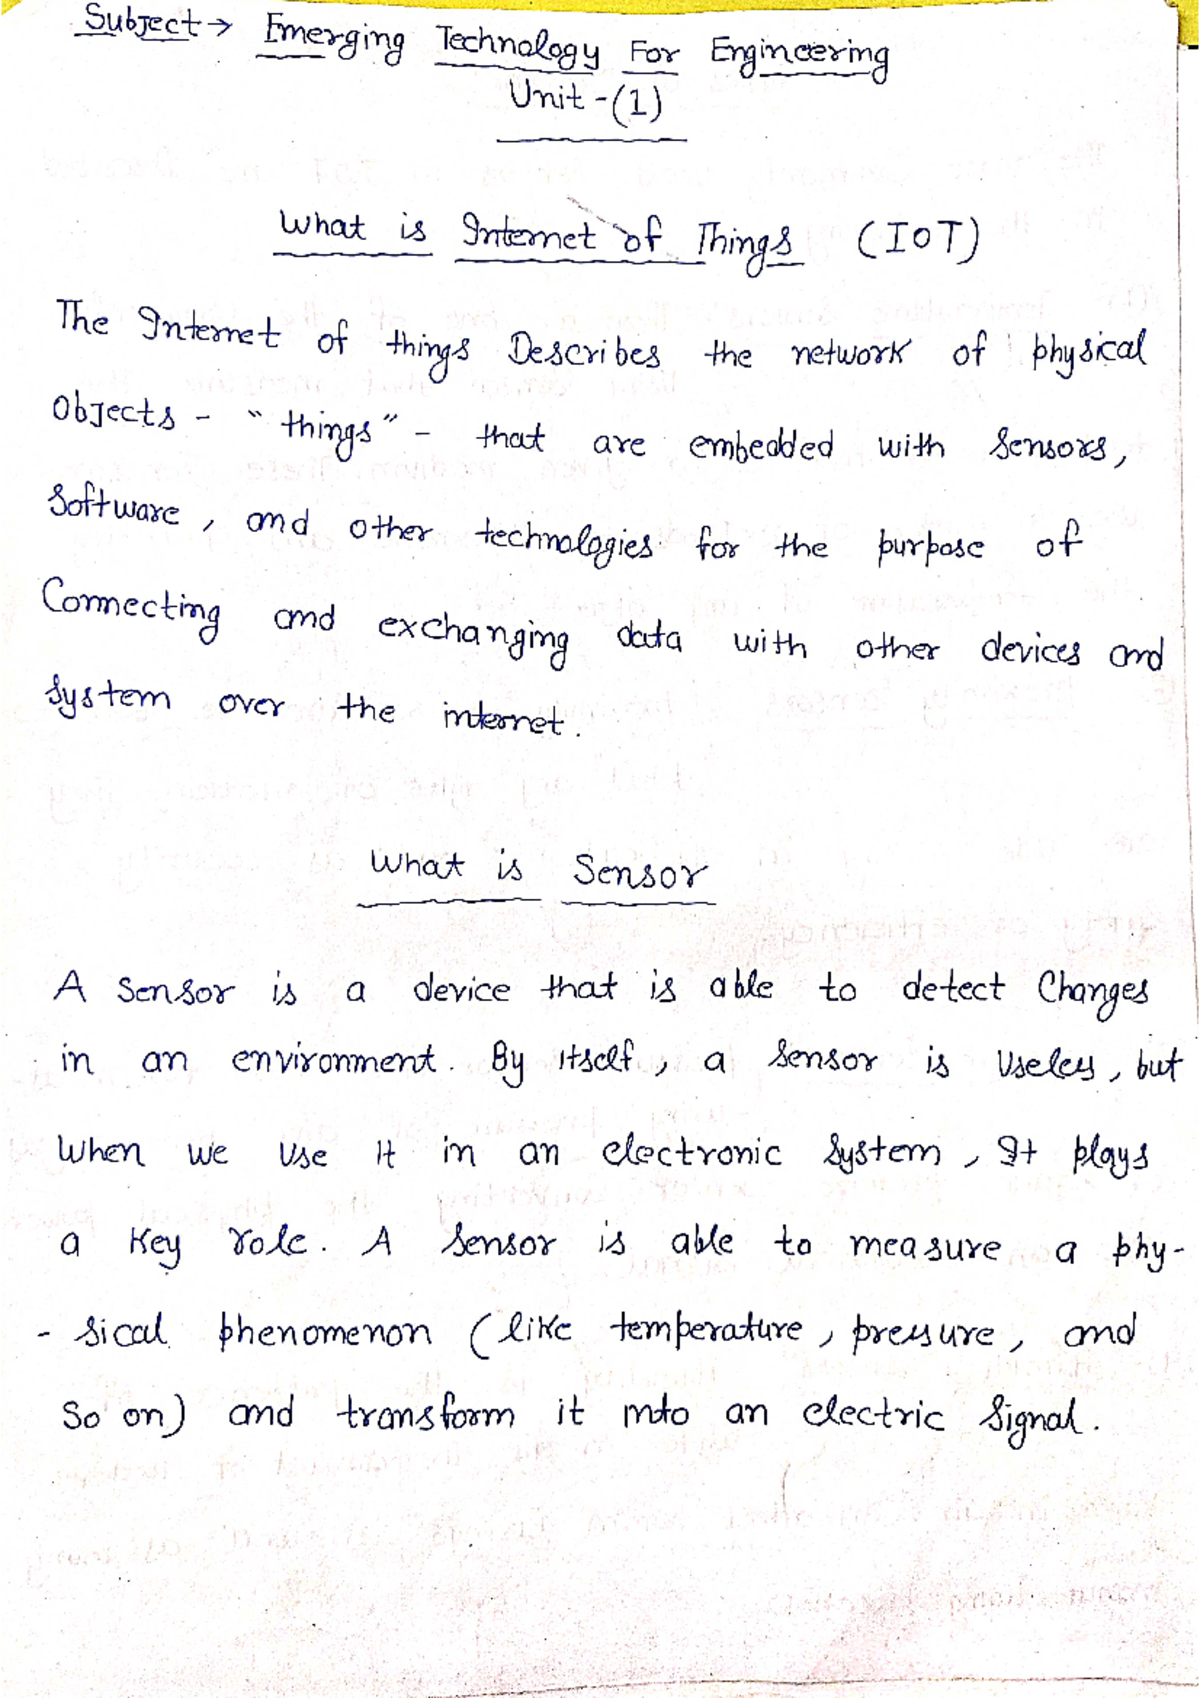 Subject → Emerging Technology For Engineering
Unit - (1)
What is Internet of Things (IOT)
The Internet of things Describes the network of physical
Objects - "things" - that are embedded with Sensors,
Software, and other technologies for the purpose of
Connecting and exchanging data with other devices and
System over the internet.
What is Sensor
A Sensor is a device that is able to detect Changes
in an environment. By itself, a Sensor is Useless, but
When we Use it in an electronic System, It plays
a Key role. A Sensor is able to measure a phy-
- sical phenomenon (like temperature, pressure, and
So on) and transform it into an electric Signal.